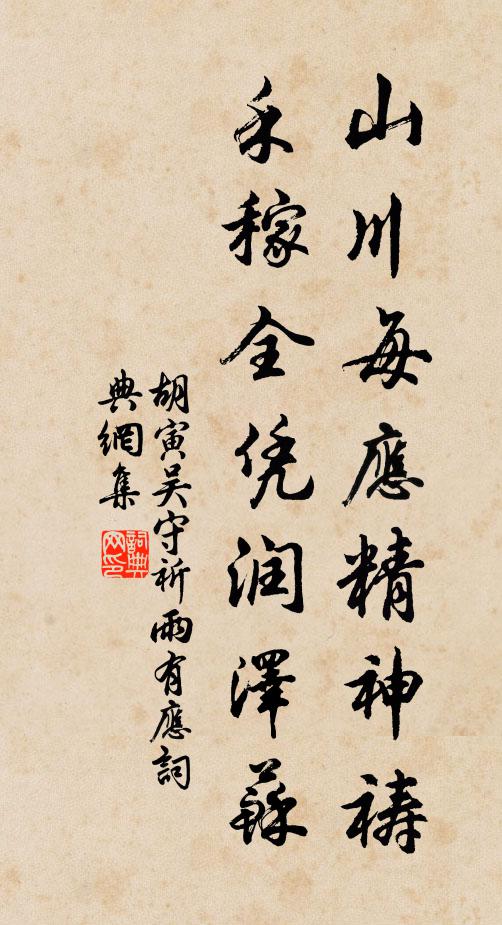 山川每應精神祷
禾稼全凭润澤蘇
胡寅吴守祈雨有應詞
典網集
詞典网印